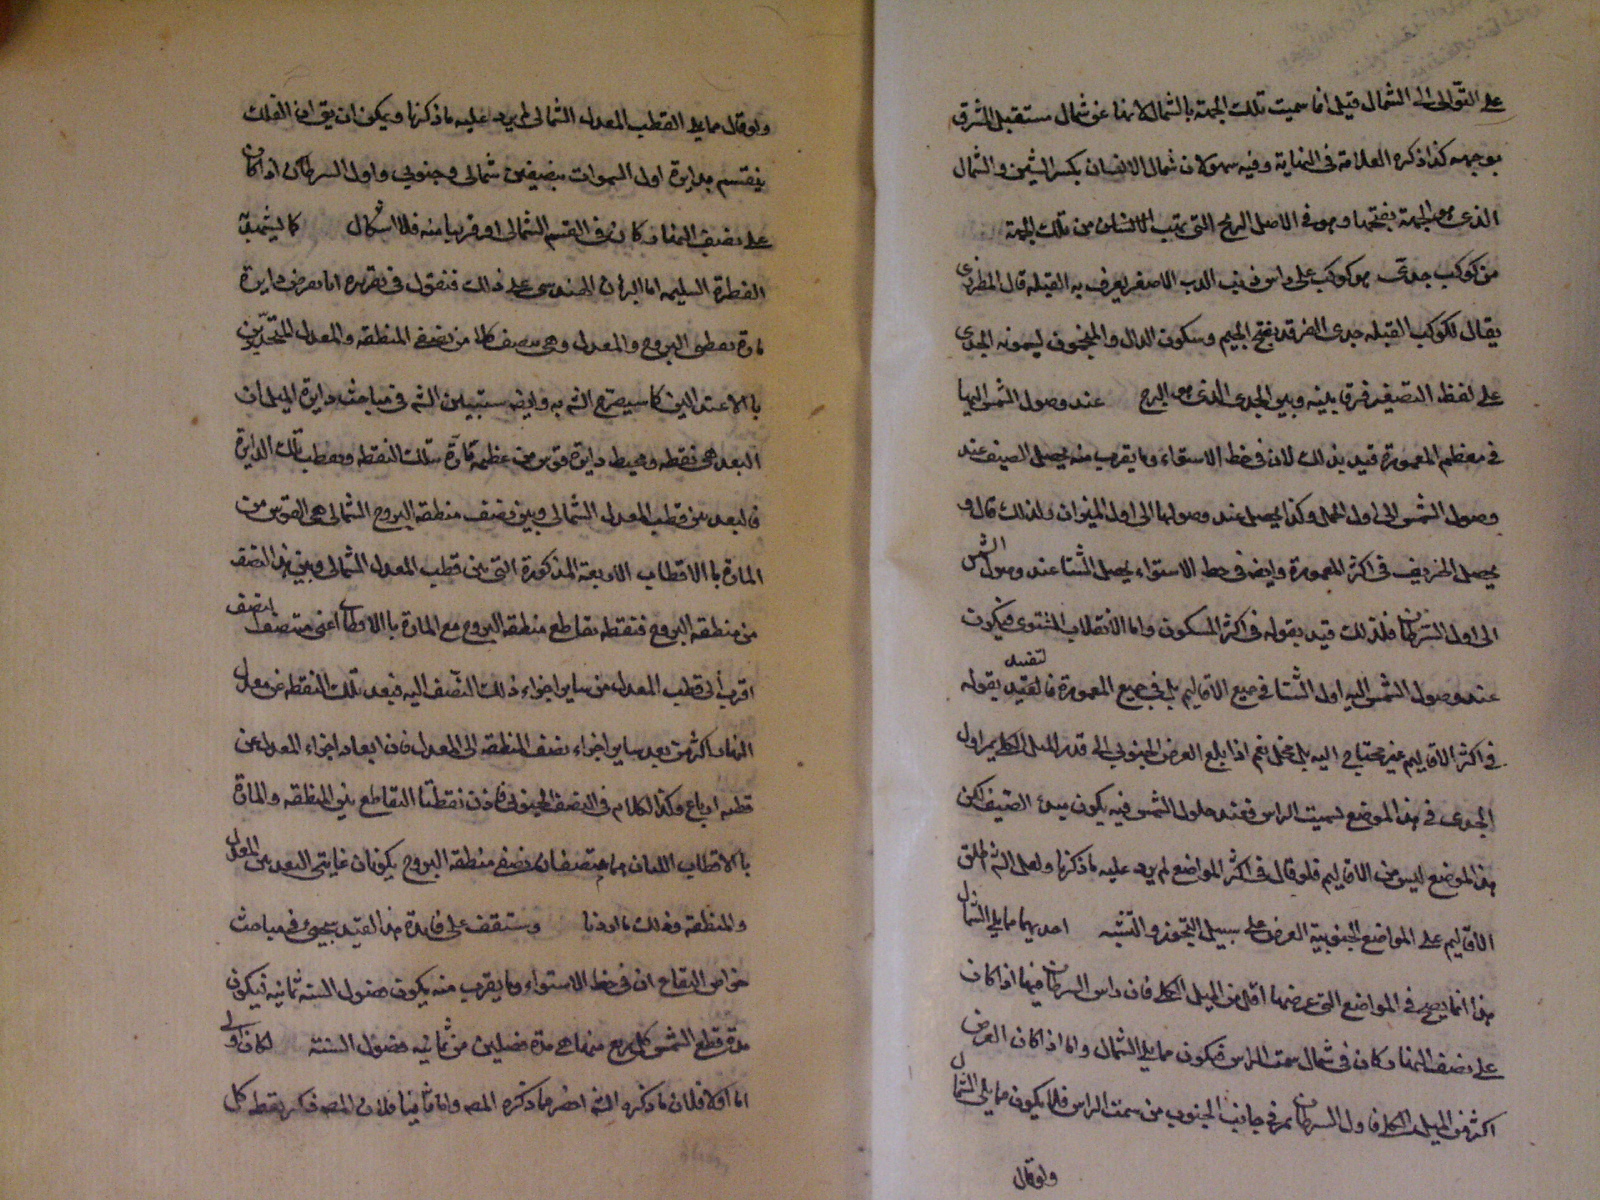 على التوالى الى الشمال قيل انما سميت تلك الجهة بالشمال لانها عن شمال مستقبل المشرق
بوجهه كذا ذكره العلامة فى النهاية وفيه سهو لان شمال الانسان بكسر الشين والشمال
الذى هو الجهة بفتحها وهو فى الاصل الريح التى تهب من تلك الجهة
من كوكب جدى هو كوكب على راس ذنب الدب الاصغر يعرف به القبلة قال المطرزى
يقال لكوكب القبله جدى الفرقد بفتح الجيم وسكون الدال والمنجمون يسمونه الجدى
على لفظ التصغير فرقا بينه وبين الجدى الذى هو البرج عند وصول الشمس اليها
فى معظم المعمورة قيد بذلك لان فى خط الاستواء وما يقرب منه يحصل الصيف عند
وصول الشمس الى اول الحمل وكذا يحصل عند وصولها الى اول الميزان ولذلك قال و
يحصل الخريف فى اكثر المعمورة وايضا فى خط الاستواء يحصل الشتا عند وصول الشمس
الى اول السرطان فلذلك قيد بقوله فى اكثر المسكون واما الانقلاب الشتوى فيكون
عند وصول الشمس اليه اول الشتا فى جميع الاقاليم بل فى جميع المعمورة فالتقييد بقوله
فى اكثر الاقاليم غير محتاج اليه بل مخل نعم اذا بلغ العرض الجنوبى الى قدر الميل الكلى يمر اول
الجدى فى هذا الموضع بسمت الراس فعند حلول الشمس فيه يكون مبدء الصيف لكن
هذا الموضع ليس من الاقاليم فلو قال فى اكثر المواضع لم يرد عليه ما ذكرنا ولعل الش اطلق
الاقاليم على المواضع الجنوبية العرض على سبيل التجوز والتشبيه احديهما مما يلى الشمال
هذا انما يصح فى المواضع التى عرضها اقل من الميل الكلى فان راس السرطان فيها اذا كان
على نصف النهار كان فى شمال سمت الراس فيكون مما يلى الشمال واما اذا كان العرض
اكثر من الميل الكلى فاول السرطان يمر فى جانب الجنوب من سمت الراس فلا يكون مما يلى الشمال
ولو قال
ولو قال مما يلى القطب المعدل الشمالى لم يرد عليه ما ذكرنا ويمكن ان يقال ان الفلك
ينقسم بدايرة اول السموات بنصفين شمالى وجنوبى واول السرطان اذا كان
على نصف النهار كان فى القسم الشمالى او قريبا منه فلا اشكال كما يشهد به
الفطرة السليمه اما البرهان الهندسى على ذلك فنقول فى تقريره انا نفرض دايرة
مارة بقطبى البروج والمعدل وهى تنصف كلا من نصفى المنطقه والمعدل المتحديين
بالاعتدالين كما سيصرح الش به وايضا ستبين الش فى مباحث دايرة الميل ان
البعد بين نقطه ومحيط دايرة قوس من عظيمه مارة بتلك النقطه وبقطب تلك الدايرة
فالبعد بين قطب المعدل الشمالى وبين نصف منطقه البروج الشمالى هى القوس من
المارة بالاقطاب الاربعة المذكورة التى بين قطب المعدل الشمالى وبين هذا النصف
من منطقه البروج فنقطه تقاطع منطقه البروج مع المارة بالاقطاب اعنى منتصف النصف
اقرب الى قطب المعدل من ساير اجزاء ذلك النصف اليه فبعد تلك النقطه عن معدل
النهار اكثر من بعد ساير اجزاء نصف المنطقه الى المعدل فان ابعاد اجزاء المعدل عن
قطبه ارباع وكذا الكلام فى النصف الجنوبى فاذن نقطتا التقاطع بين المنطقه والمارة
بالاقطاب اللتان هما منتصفان نصفى منطقه البروج يكونان غايتى البعد بين المعدل
والمنطقه وذلك ما اردنا وستقف على فايدة هذا القيد سيجيئ فى مباحث
خواص البقاع ان فى خط الاستواء وما يقرب منه يكون فصول السنة ثمانية فيكون
مدة قطع الشمس كل ربع منها هى مدة فصلين من ثمانيه فصول السنة لكان اولى
اما اولا فلان ما ذكره الش اخصر مما ذكره المص واما ثانيا فلان المص ذكر نقطه كل